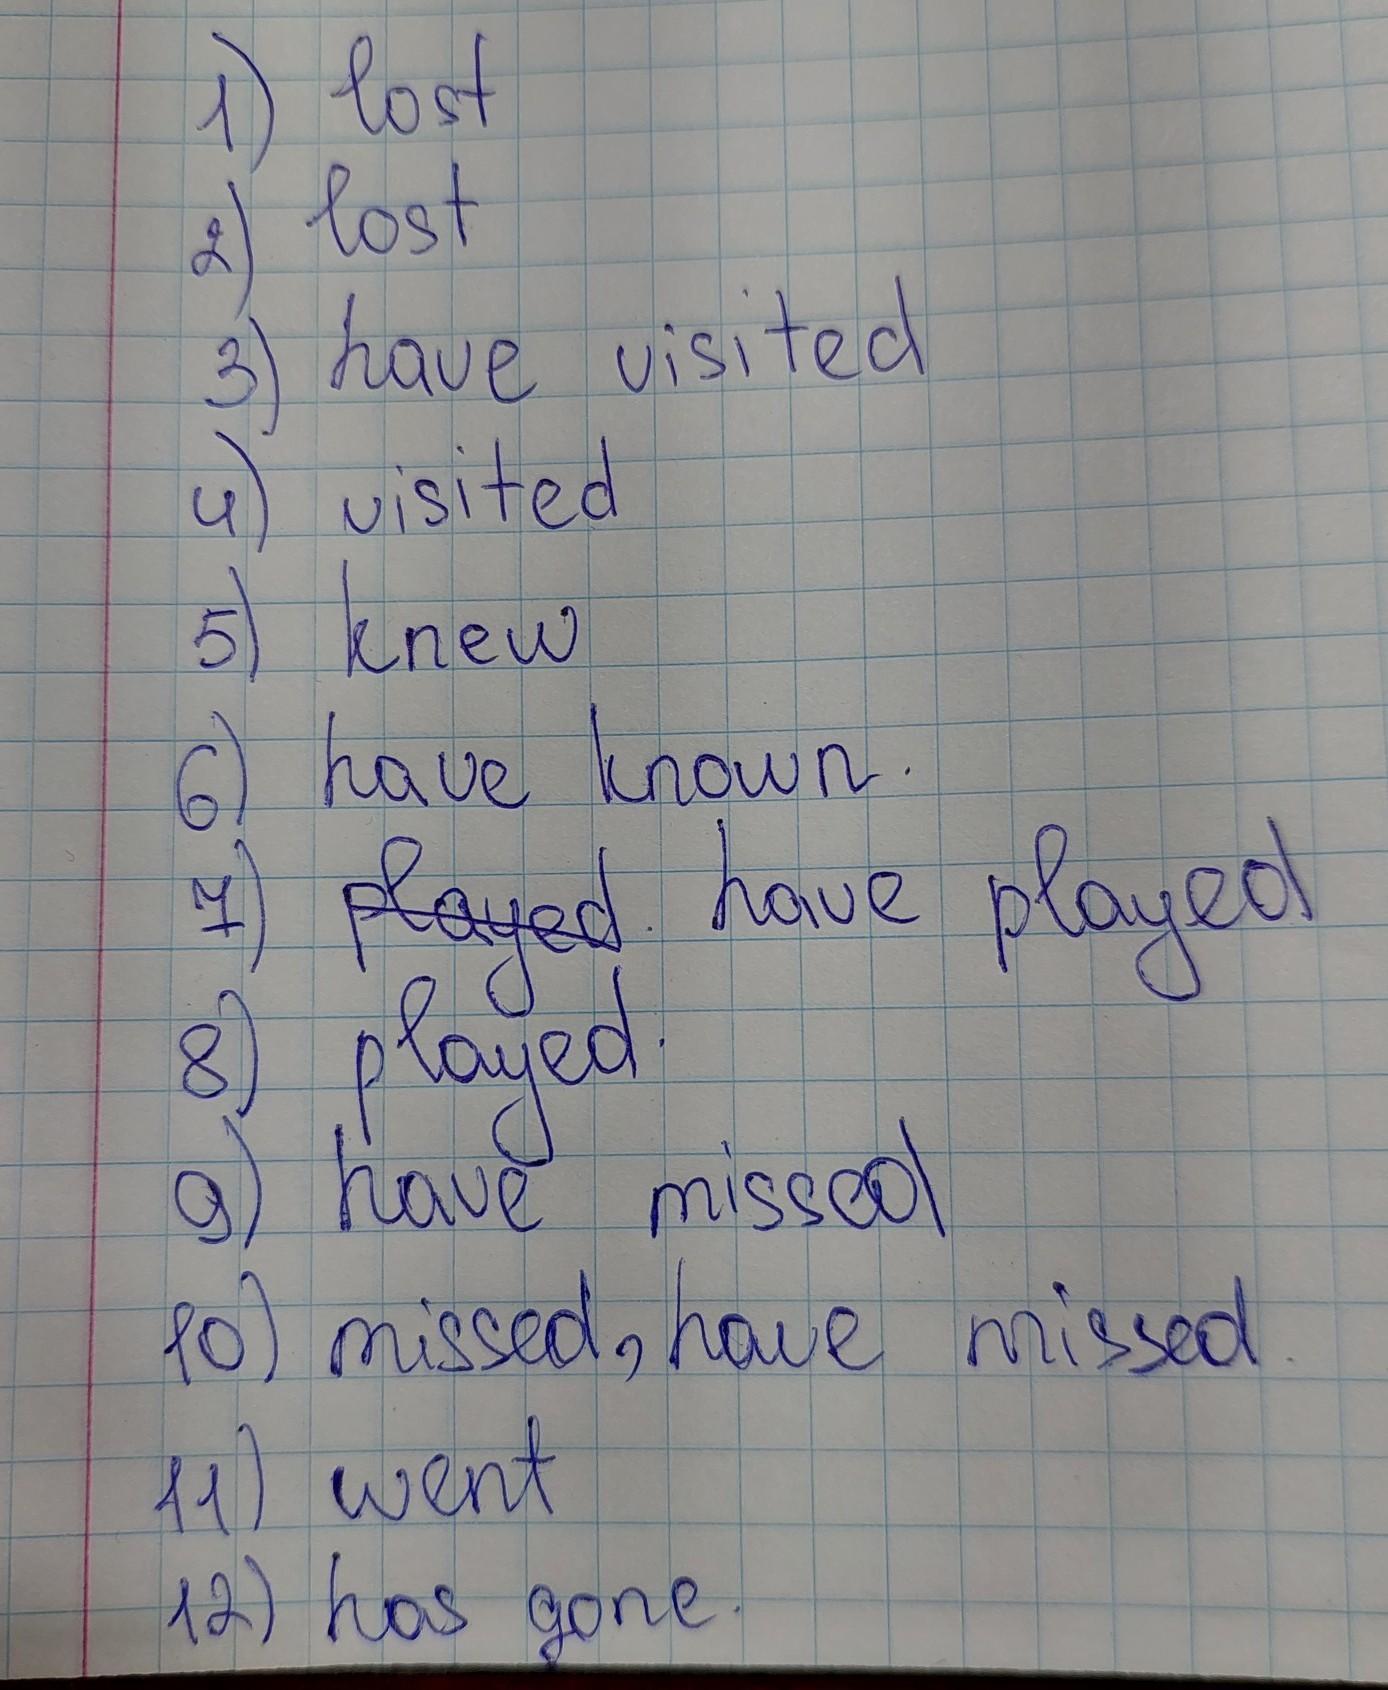 1) lost
2) lost
3) have visited
4) visited
5) knew
6) have known.
7) played. have played
8) played.
9) have missed
10) missed, have missed.
11) went
12) has gone.